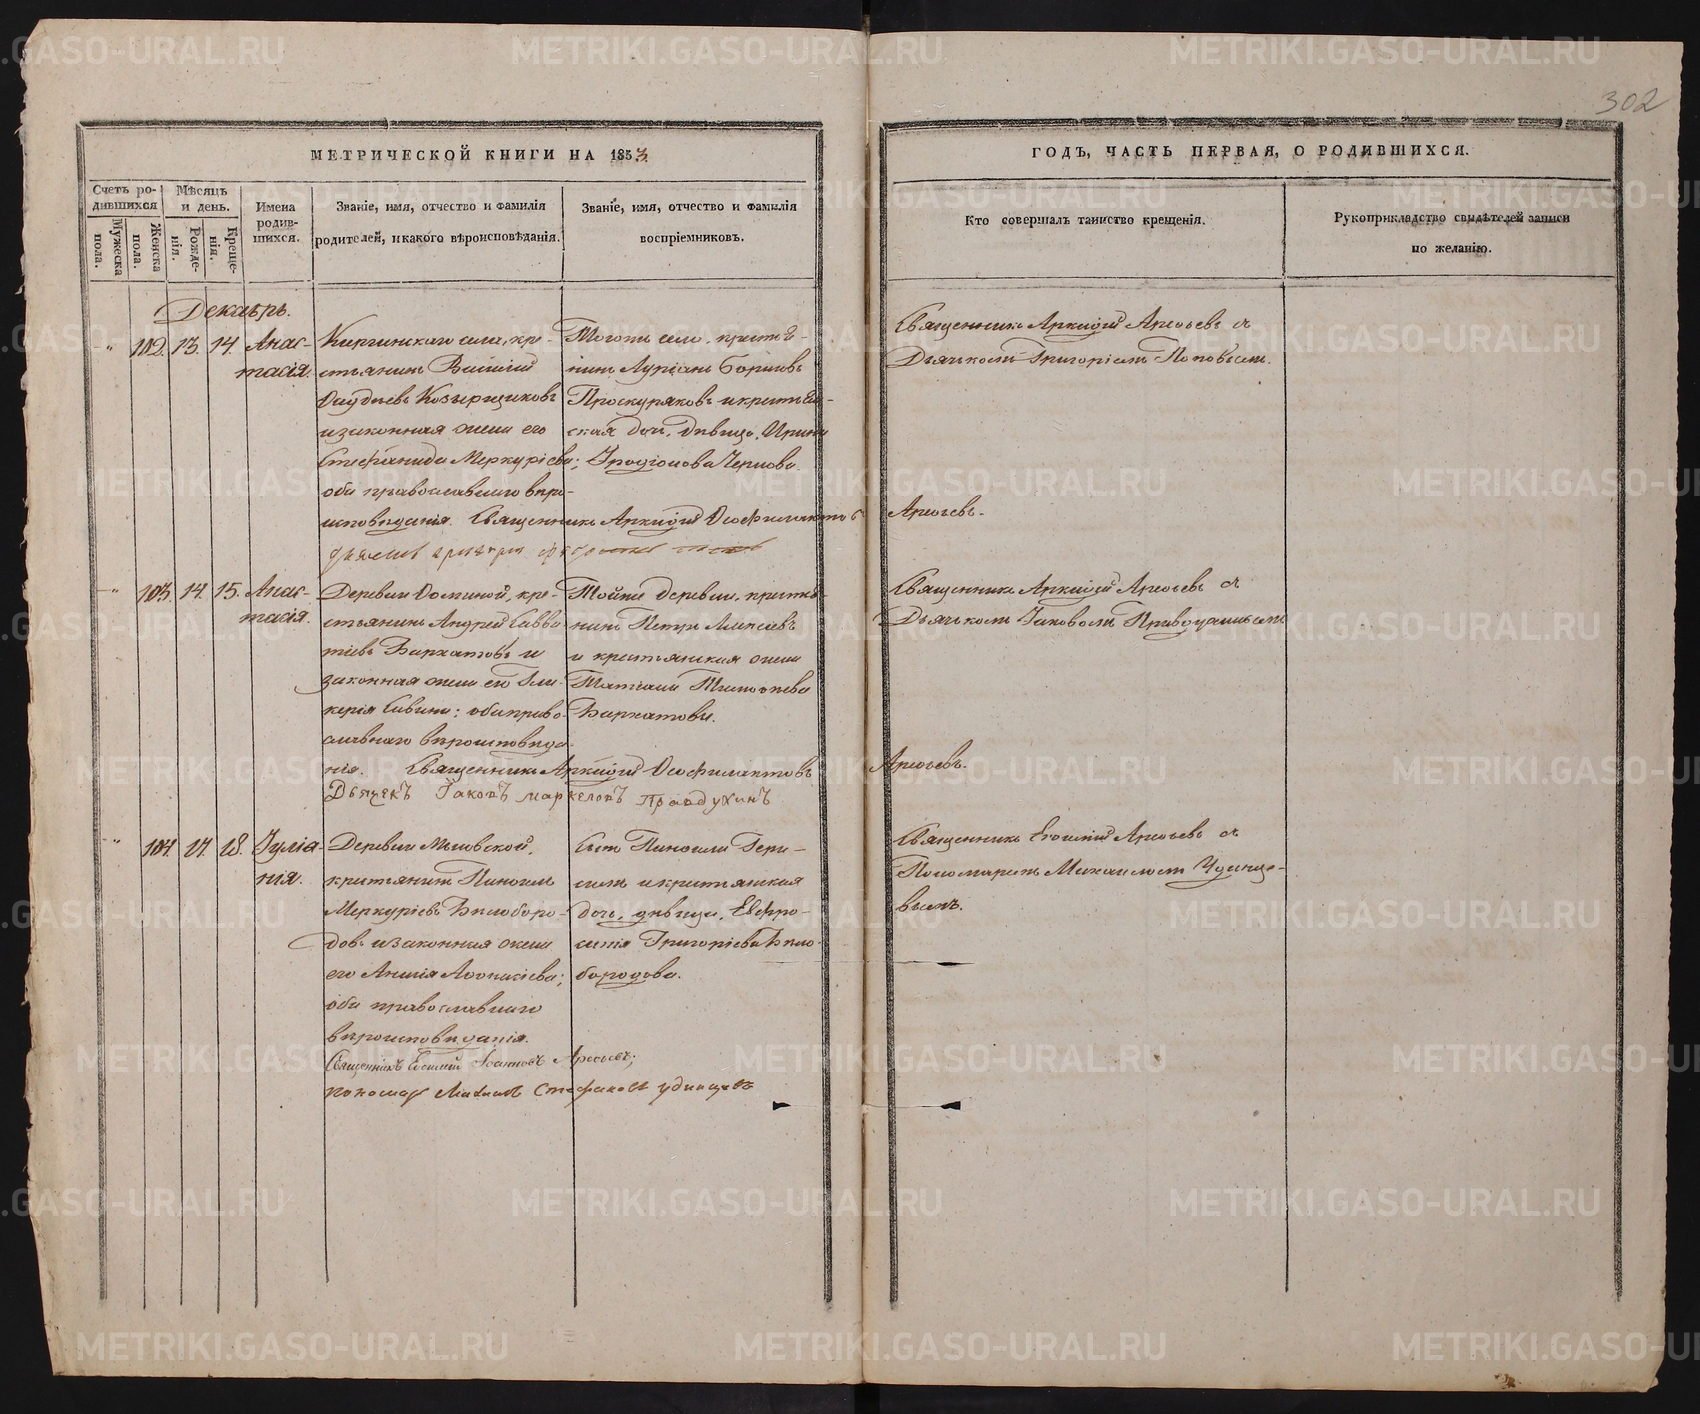 302
МЕТРИЧЕСКОЙ КНИГИ НА 1853
ГОДЪ, ЧАСТЬ ПЕРВАЯ, О РОДИВШИХСЯ.
Счетъ ро-
дившихся
Мужеска пола.
Женска пола.
Мѣсяцъ
и день.
Рожде-
нія.
Креще-
нія.
Имена
родив-
шихся.
Званіе, имя, отчество и фамилія
родителей, и какого вѣроисповѣданія.
Званіе, имя, отчество и фамилія
воспріемниковъ.
Кто совершалъ таинство крещенія.
Рукоприкладство свидѣтелей записи
по желанію.
Декабрь.
" 102. 13. 14. Анас-
тасія.
Киргинскаго села, кре-
стьянинъ Василій
Козырщиковъ
и законная жена его
Стефанида Меркуріева;
оба православнаго вѣро-
исповѣданія. Священникъ Аркадій Ѳеофилактовъ
Арефьевъ.
Тогоже села, крестья-
нинъ
Проскуряковъ и крестьян-
ская дочь, дѣвица, Ирина
Иродіонова Чернова.
Священникъ Аркадій Арефьевъ съ
Дьячкомъ Григоріемъ Поповымъ.
" 103. 14. 15. Анас-
тасія.
Деревни Ооминой, кре-
стьянинъ Андрей Савва-
тіевъ Бархатовъ и
законная жена его Гли-
керія Савина; оба право-
славнаго вѣроисповѣда-
нія. Священникъ Аркадій Ѳеофилактовъ
Арефьевъ.
Дьячекъ Іаковъ Маркеловъ Правдухинъ
Тойже деревни, крестья-
нинъ Петръ Алексѣевъ
и крестьянская жена
Татіана Тимоѳеева
Бархатовы.
Священникъ Аркадій Арефьевъ съ
Дьячкомъ Іаковомъ Правдухинымъ
" 104. 17. 18. Іуліа-
нія.
Деревни
крестьянинъ Пиногенъ
Меркуріевъ Бѣлоборо-
довъ и законная жена
его Аннія Аѳонасіева;
оба православнаго
вѣроисповѣданія.
Священникъ Евгеній Іоанновъ Арефьевъ;
пономарь Михаилъ Стефановъ Удинцевъ
Сынъ Пиногена Гера-
симъ и крестьянская
дочь, дѣвица, Евфро-
синія Григоріева Бѣло-
бородова.
Священникъ Евгеній Арефьевъ съ
Пономаремъ Михаиломъ Удинце-
вымъ.
METRIKI.GASO-URAL.RU